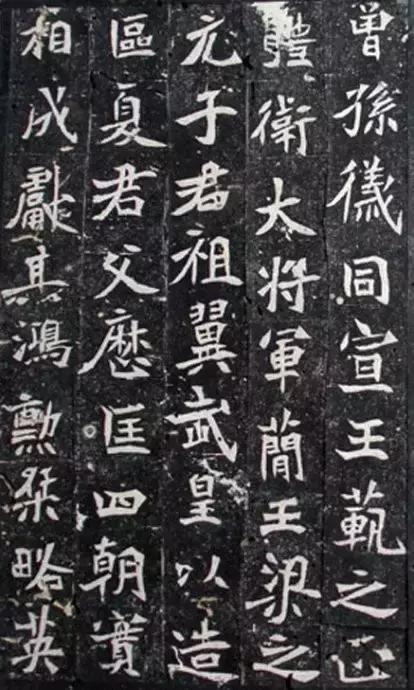 曾孫儀同宣王範之正
體衛大將軍簡王梁之
元子君祖翼武皇以造
區夏君父歷匡四朝實
相成獻其鴻勲桀略英